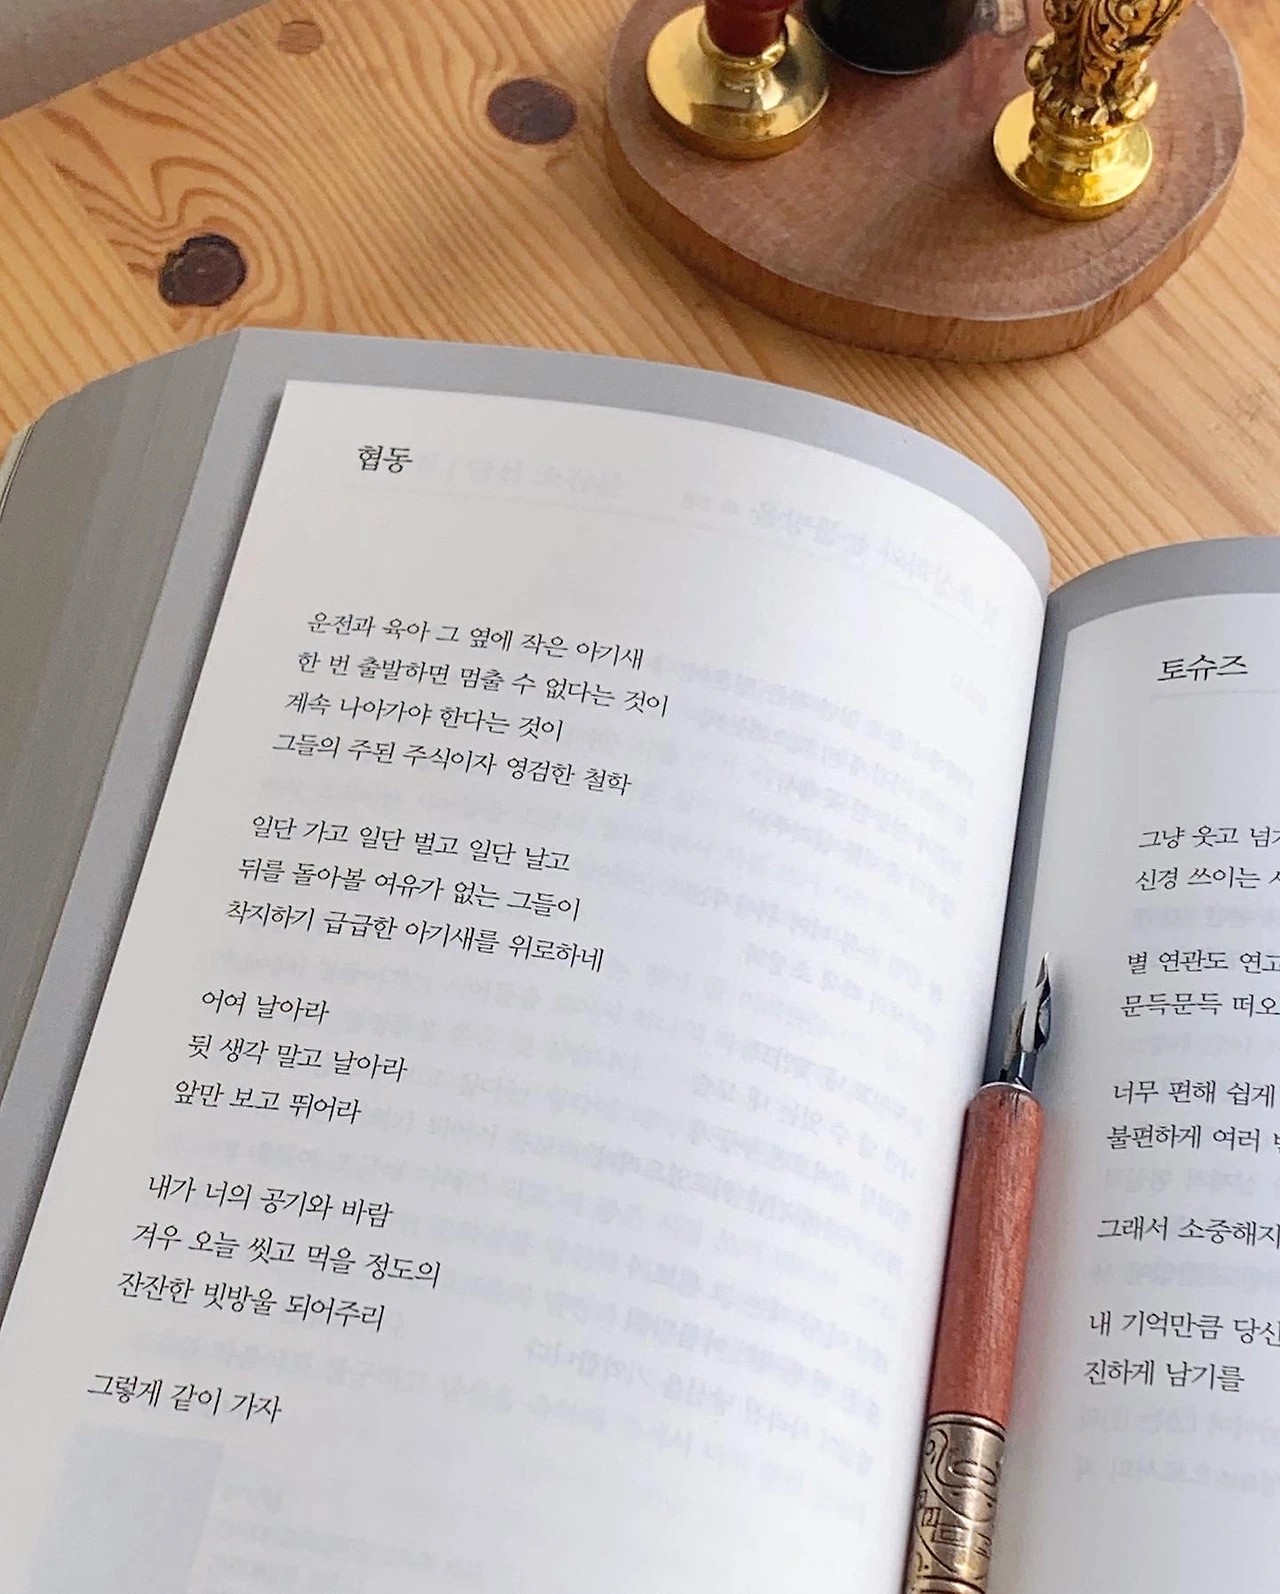 협동
운전과 육아 그 옆에 작은 아기새
한 번 출발하면 멈출 수 없다는 것이
계속 나아가야 한다는 것이
그들의 주된 주식이자 영검한 철학
일단 가고 일단 벌고 일단 날고
뒤를 돌아볼 여유가 없는 그들이
착지하기 급급한 아기새를 위로하네
어여 날아라
뒷 생각 말고 날아라
앞만 보고 뛰어라
내가 너의 공기와 바람
겨우 오늘 씻고 먹을 정도의
잔잔한 빗방울 되어주리
그렇게 같이 가자
토슈즈
그냥 웃고
신경 쓰이는
별 연관도
문득문득
너무 편해 쉽게
불편하게 여러
그래서
내 기억만큼
진하게 남기를